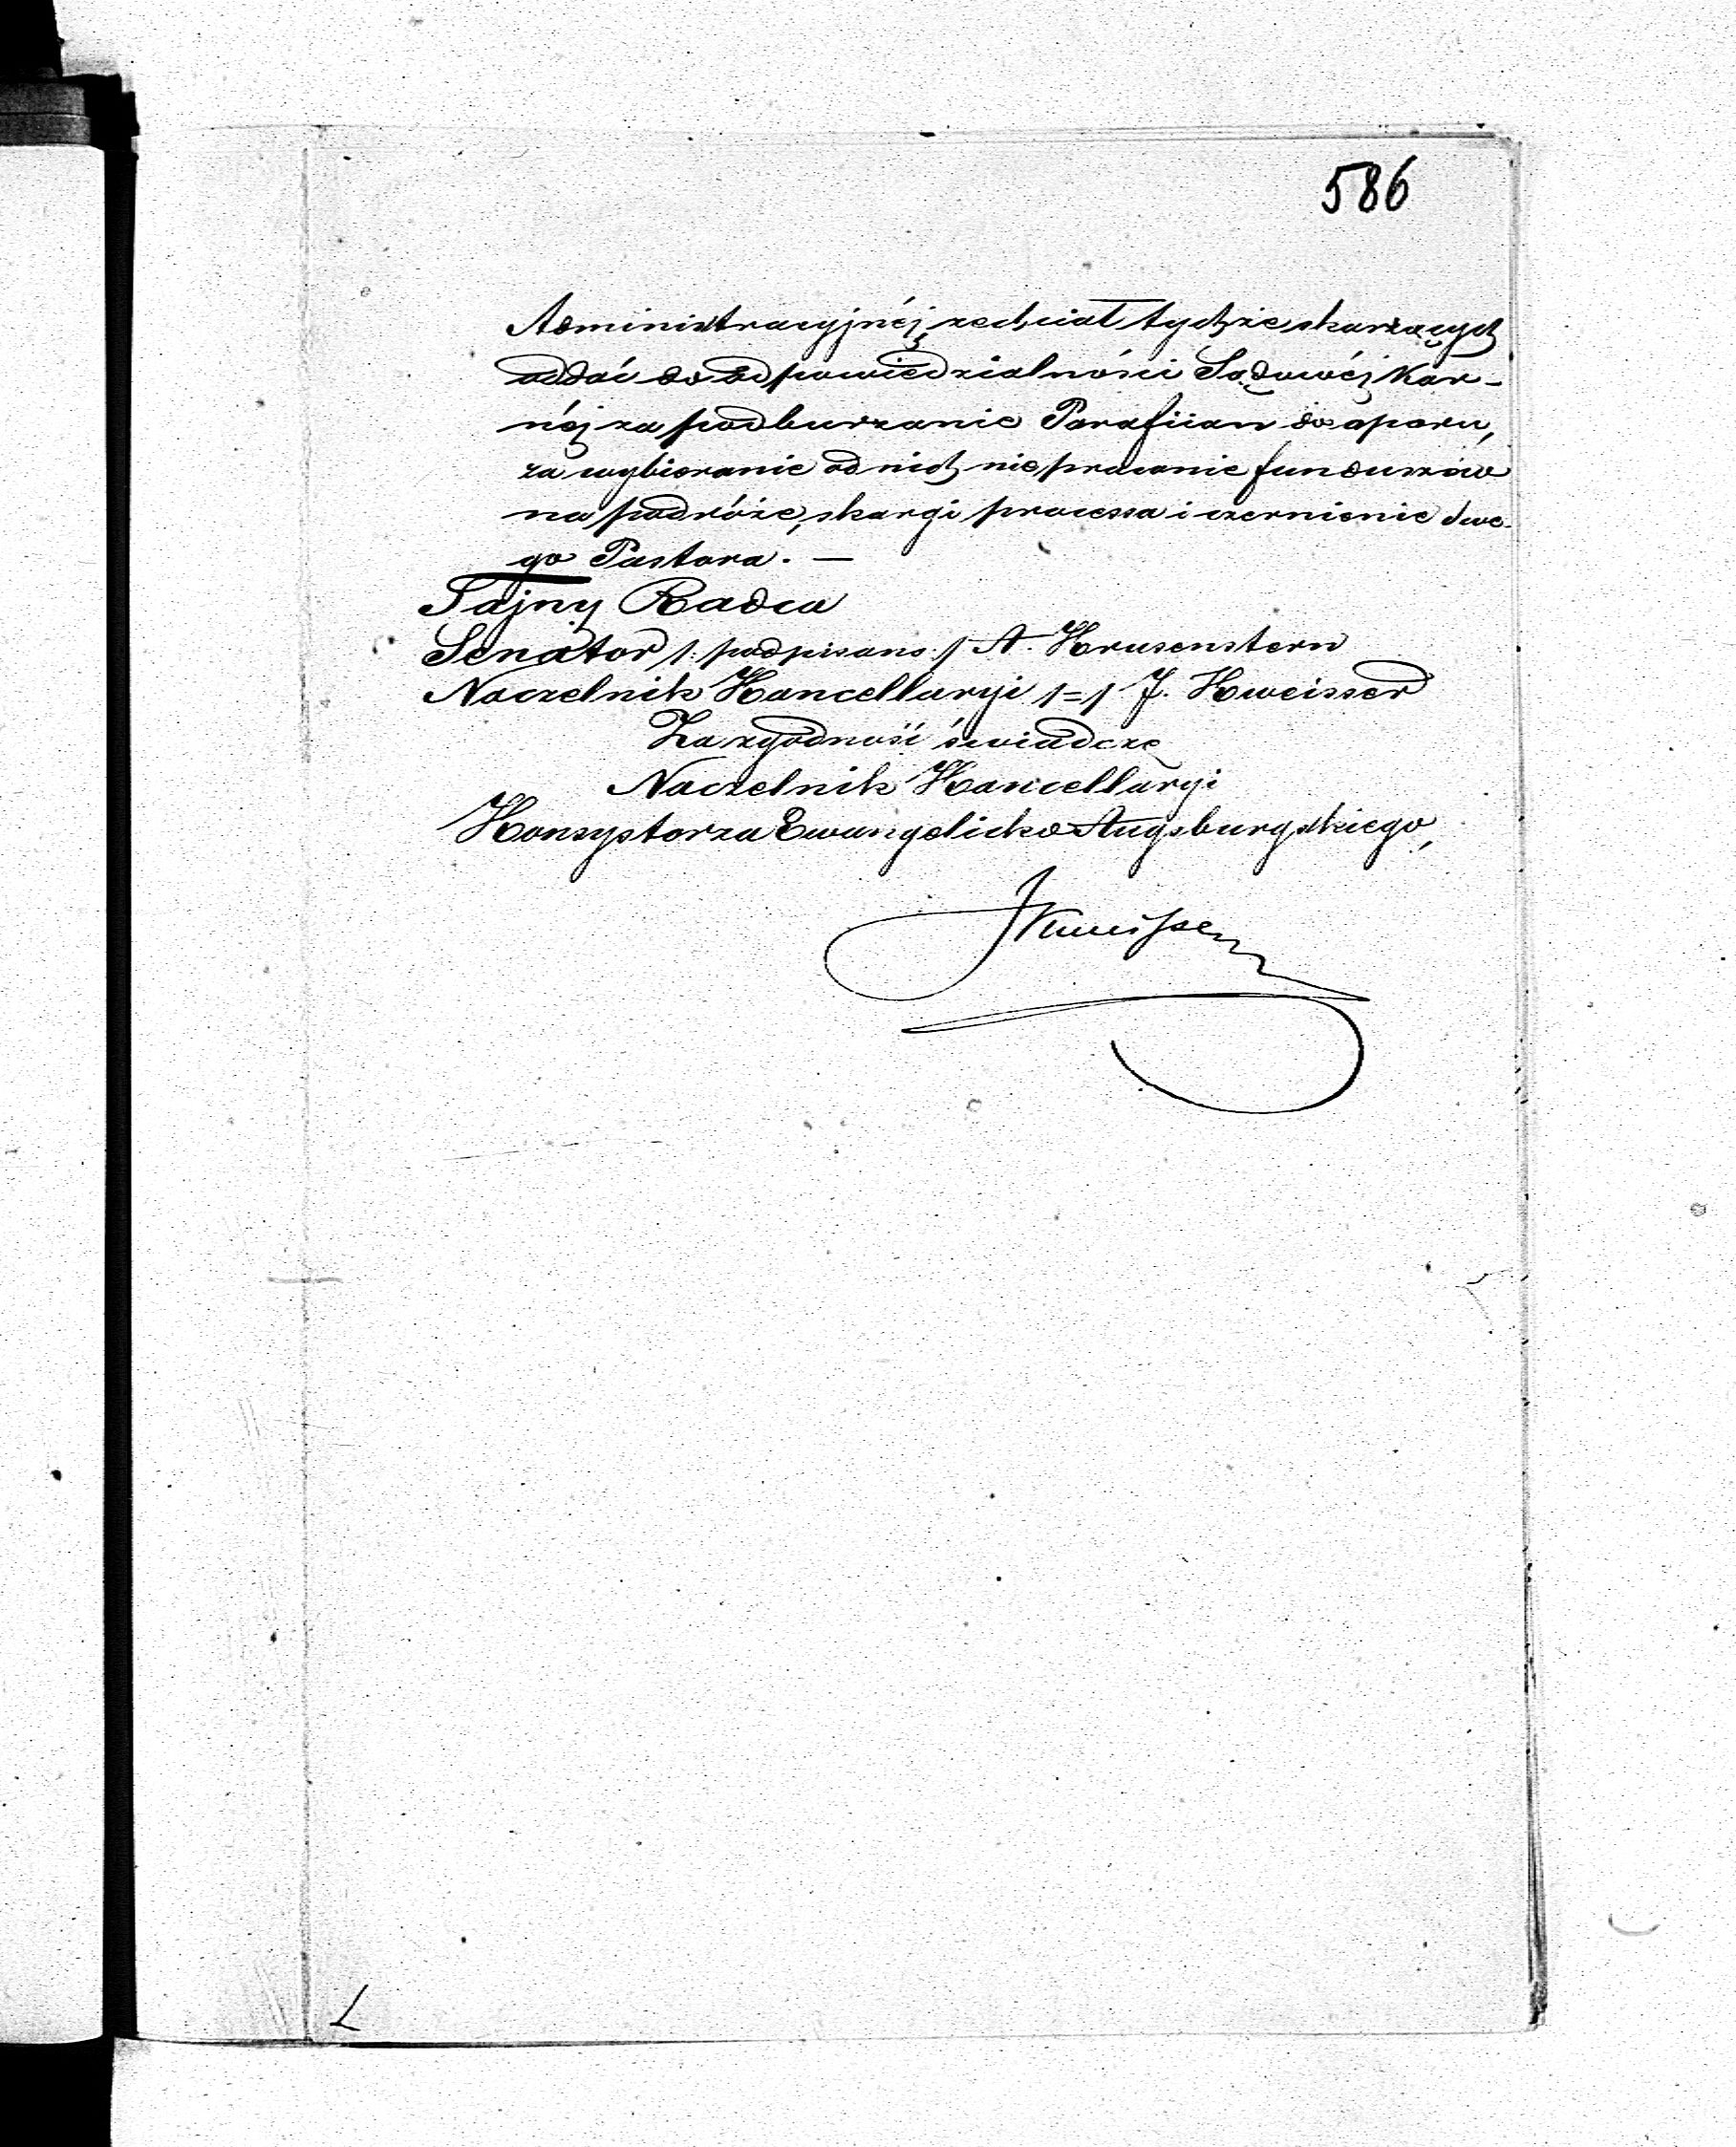 586
Administracyjnéj, zechciał tychże skarżących
oddać do odpowiedzialności Sądowéj Kar-
néj za podburzanie Parafiian do oporu,
za wybieranie od nich nieprawnie funduszów
na podróże, skargi processa i czernienie swe-
go Pastora. —
Tajny Radca
Senator /: podpisano :/ A. Krusenstern
Naczelnik Kancellaryi /=/ J. Kweisser
Za zgodność świadczę
Naczelnik Kancellaryi
Konsystorza Ewangelicko Augsburgskiego,